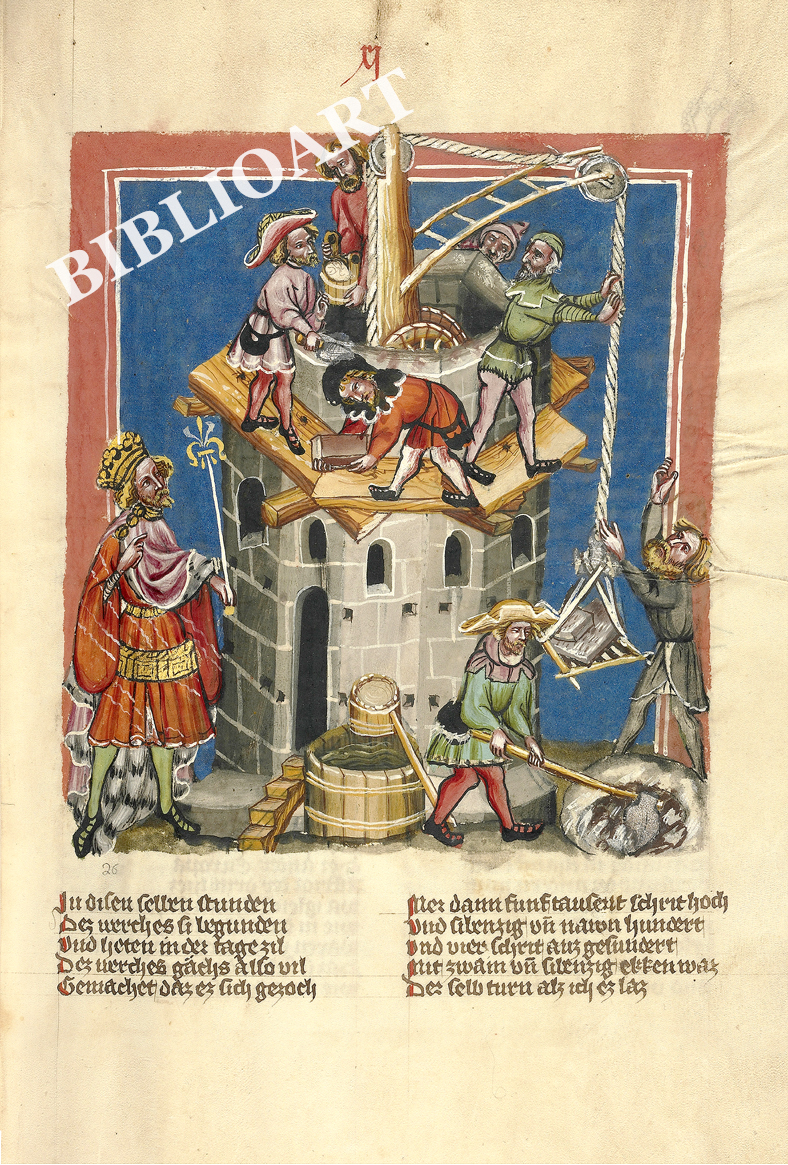 XI
BIBLIOART
26
In disen selben stunden
Dez werches si begunden
vnd heten in der tage zil
Dez werches gächs also vil
Gemachet daz ez sich gezoch
Mer dann funf tausent schrit hoch
vnd sibenzig vn̄ nawn hundert
vnd vier schrit auz gesundert
Mit zwain vn̄ sibenzig ekken waz
Der selb turn alz ich ez laz